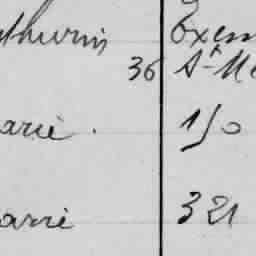 thurin Exem
36 St-M
arie. 150
arie 321